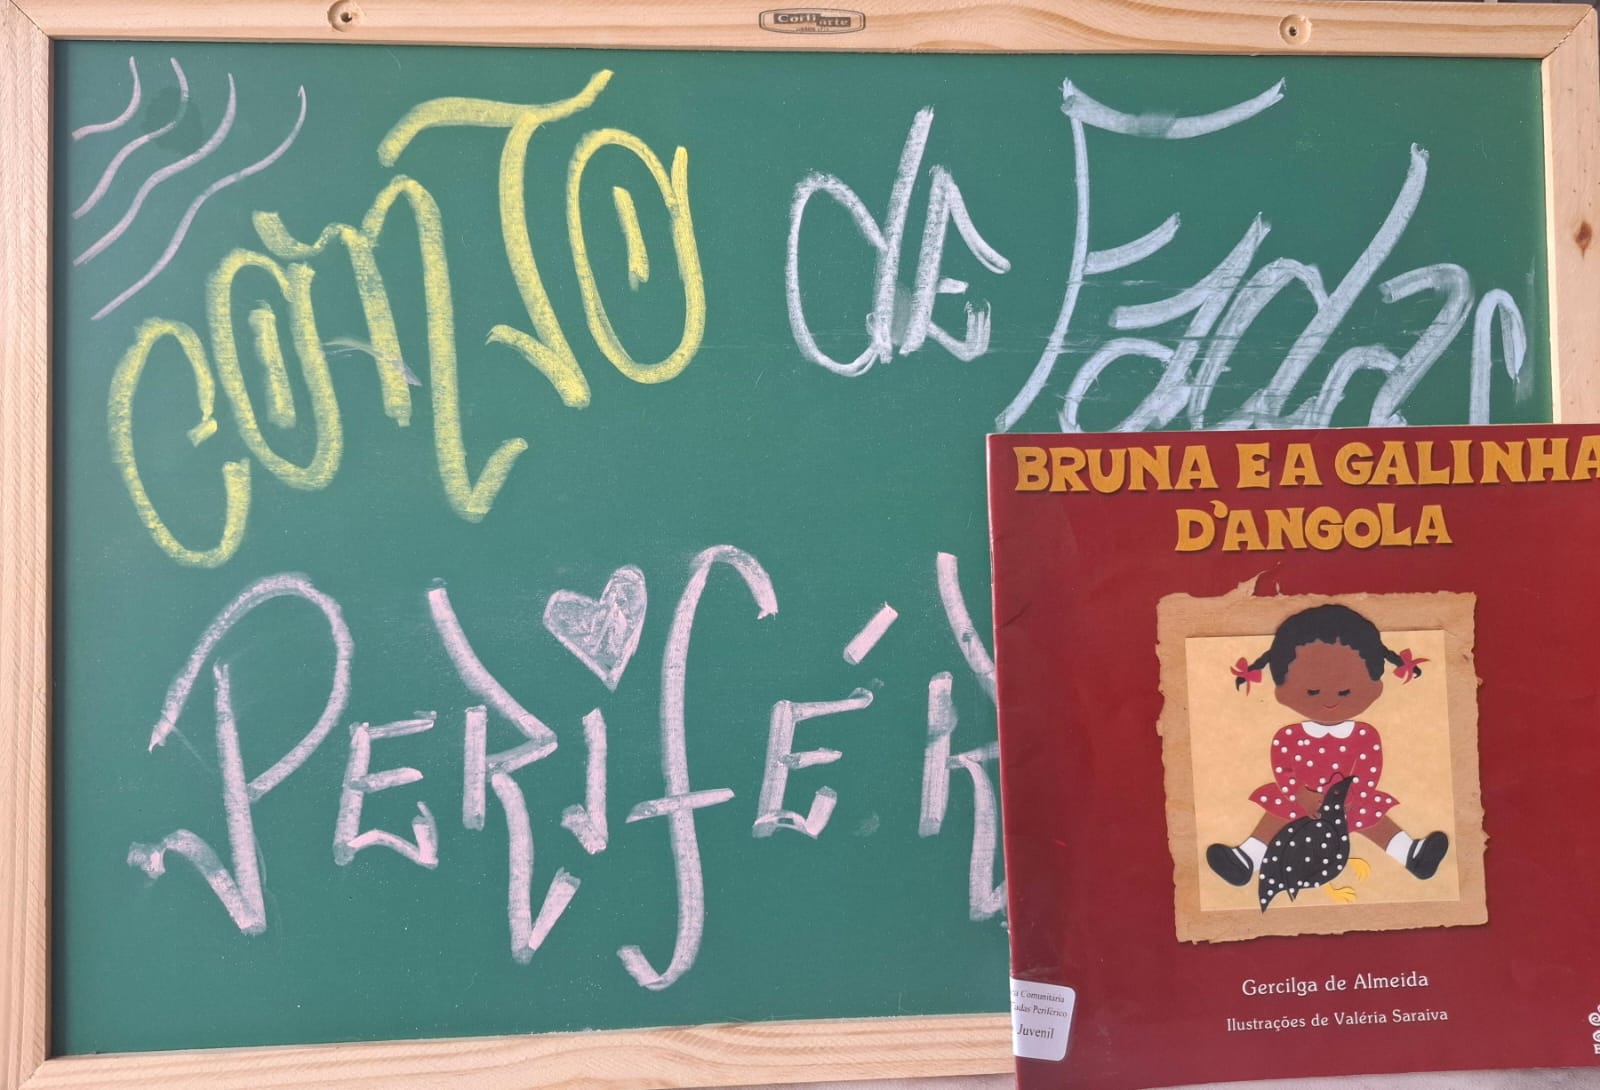 Corti arte
CONTO de Fadas
PERIFÉR
BRUNA E A GALINHA
D'ANGOLA
Gercilga de Almeida
Ilustrações de Valéria Saraiva
Comunitária
Fadas Periférico
Juvenil